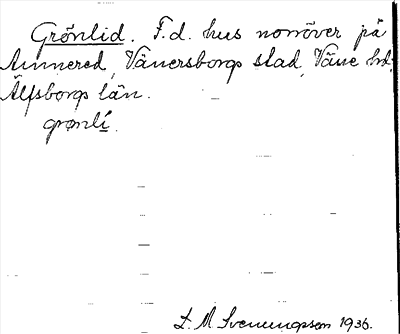 Grönlid. F.d. hus norröver på
Annered, Vänersborgs stad, Väne hd.
Älfsborgs län.
grønlí.
L. M. Svenungsson 1936.